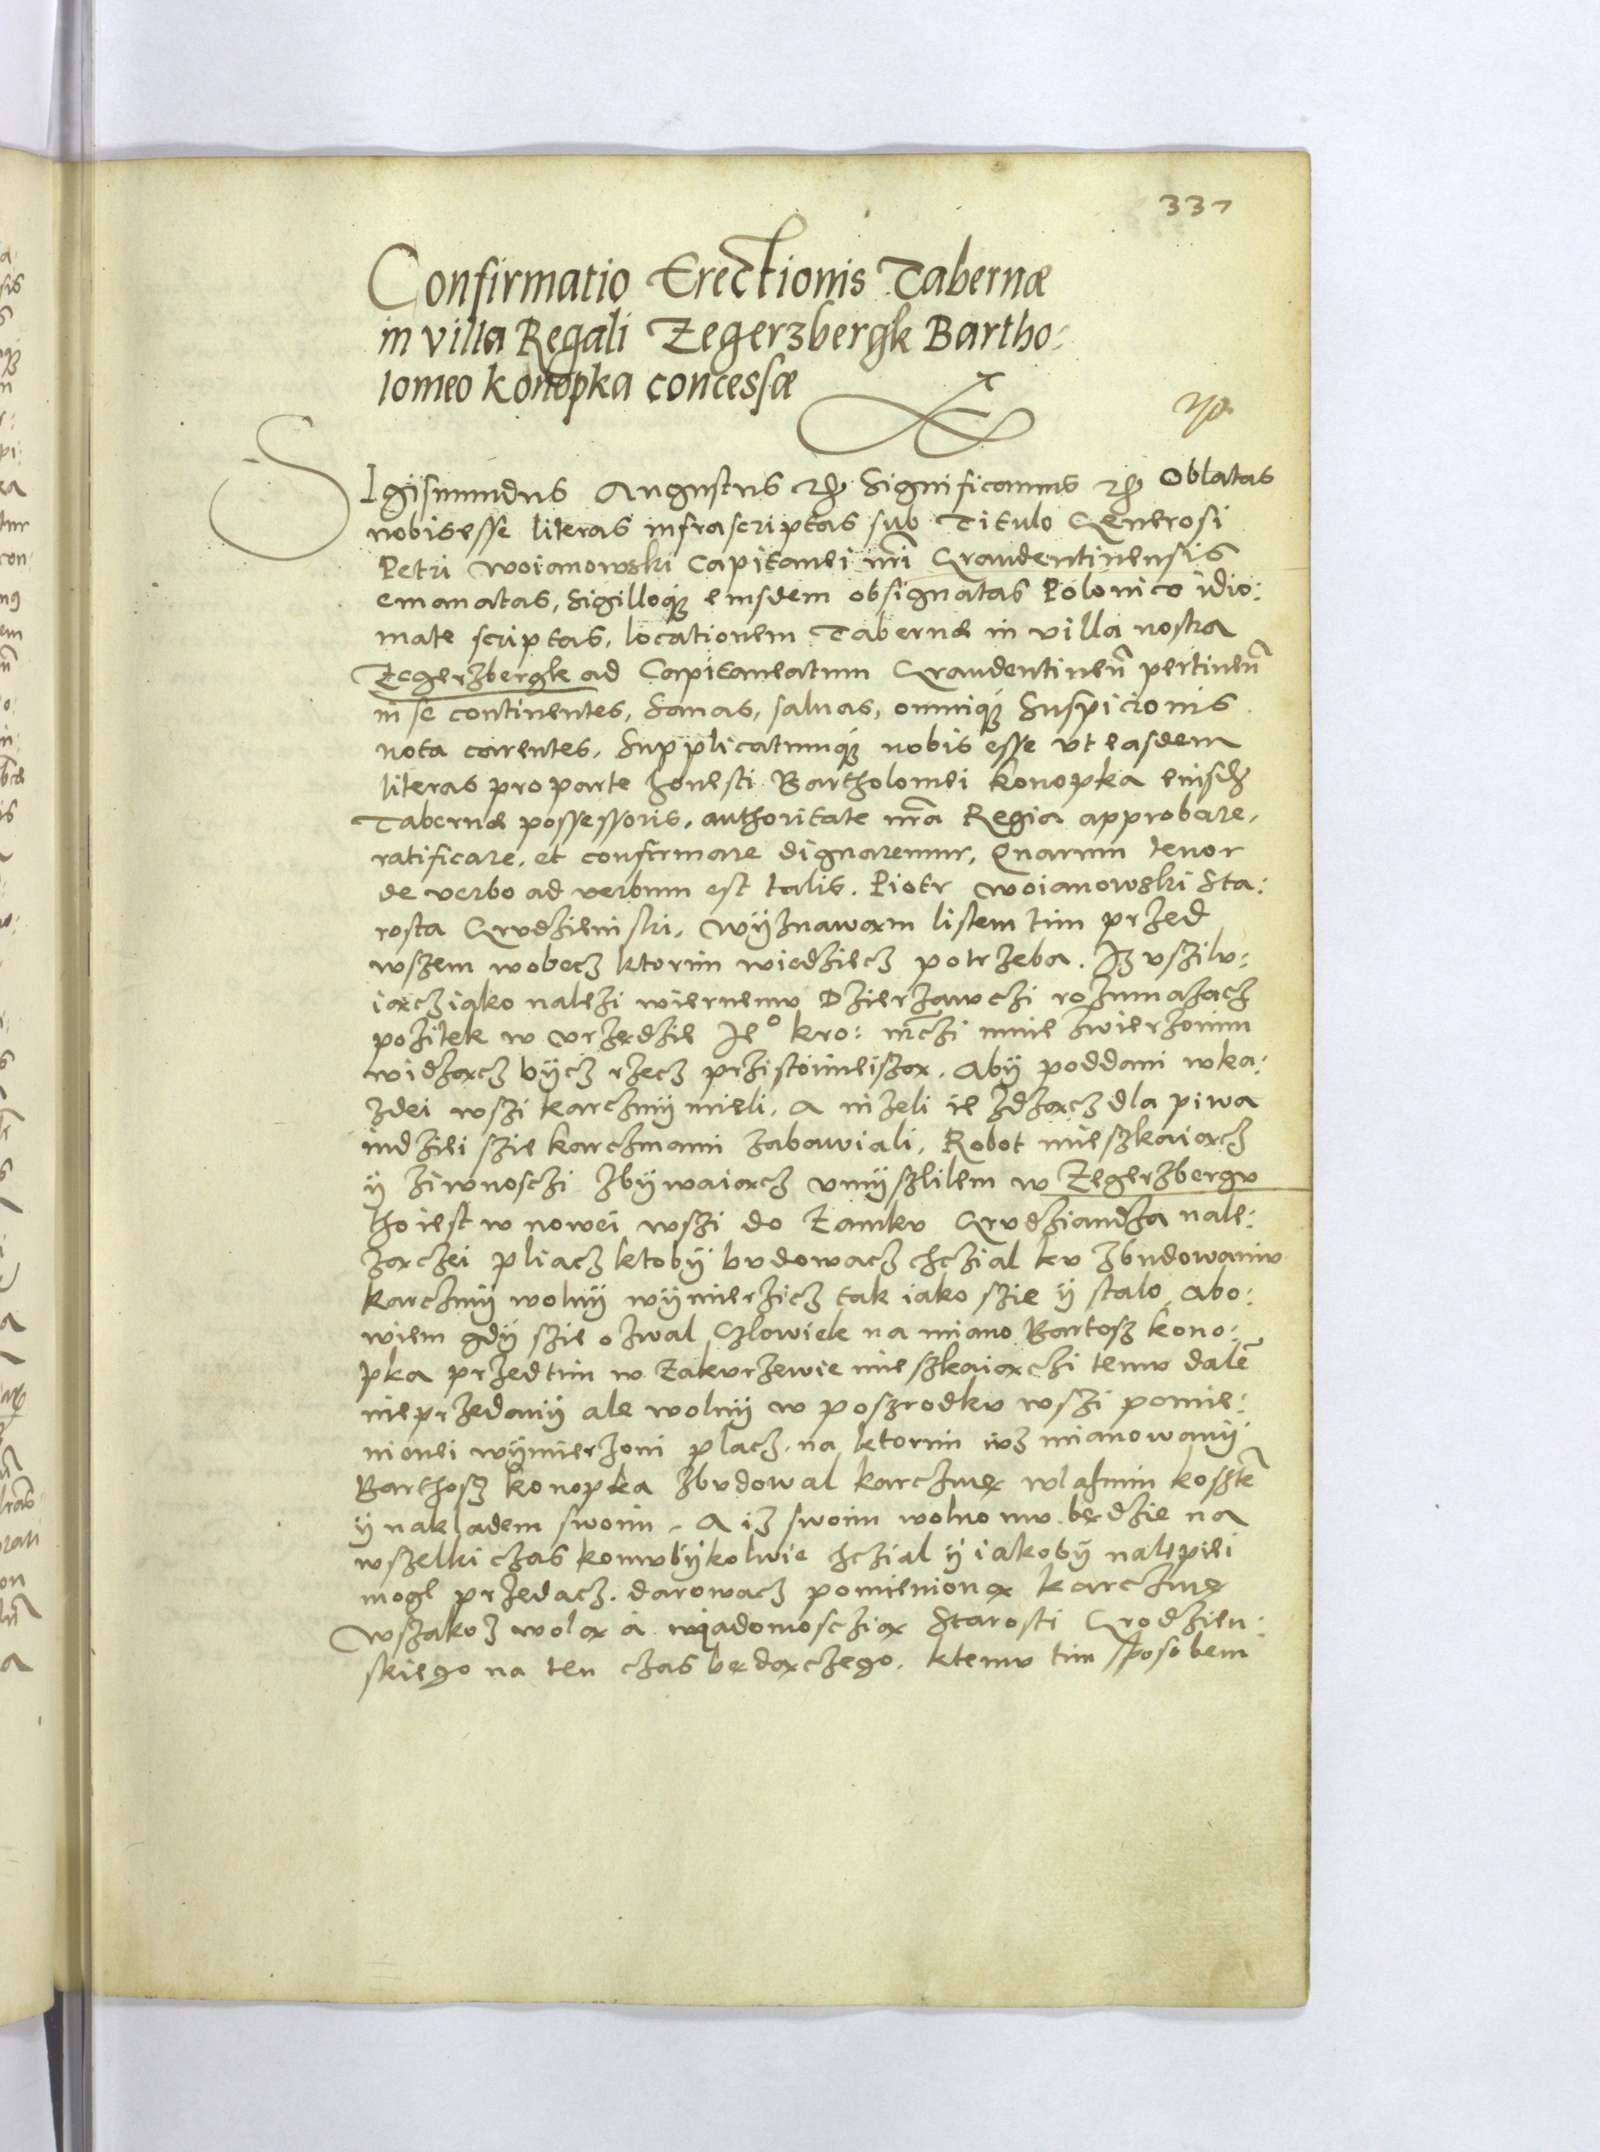 337
Confirmatio Erectionis Tabernæ
in villa Regali Zegerzbergk Bartho:
lomeo konopka concessæ
SIgismundus Augustus Significamus Oblatas
nobis esse literas infrascriptas sub Titulo Generosi
Petri woianowski Capitanei nri Graudentinensis
emanatas, Sigilloq eiusdem obsignatas Polonico idio:
mate scriptas, locationem Tabernæ in villa nostra
Zegerzbergk ad Capitaneatum Graudentinen pertinen
in se continentes, Sanas, saluas, omniq Suspicionis
nota carentes, Supplicatumq nobis esse vt easdem
literas pro parte honesti Bartholomei konopka eiusd
Tabernæ possessoris, authoritate nra Regia approbare,
ratificare, et confirmare dignaremur, Quarum tenor
de verbo ad verbum est talis. Piotr woianowski Sta:
rosta Grudzienski, wÿznawam listem tim przed
wszem wobecz ktorim wiedziecz potrzeba. Iz vszilu:
iącz iako nalezi wiernemu Dzierzawczi rozmnazacz
pozitek w vrzędzie Ie° kro: mczi mnie zwierzonim
widząc bÿcz rzecz przistoinieiszą. Abÿ poddani wka:
zdei wszi karczmÿ mieli, a nizeli ie zdząc dla piwa
indziei szie karczmami zabawiali, Robot mieszkaiącz
ÿ ziwnosczi zbÿwaiącz vmÿszlilem w Zegerzbergu
tho iest w nowei wszi do Zamku Grudziandza nale:
zączei pliacz ktobÿ budowacz chczial ku zbudowaniu
karczmÿ wolnÿ wÿmierzicz tak iako szie ÿ stalo, Abo:
wiem gdÿ szie ozwal Człowiek na miano Bartosz kono:
pka przedtim w Zakurzewie mieszkaiączi temu dale
nieprzedanÿ ale wolnÿ w poszrodku wszi pomie:
nionei wÿmierzoni placz, na ktorim iuz mianowanÿ
Barthosz konopka zbudowal karczmę wlasnim koszte
ÿ nakladem swoim, A iz swoim wolno mu będzie na
wszelki czas komubÿkolwie chczial ÿ iakobÿ nalepiei
mogl przedacz, darowacz pomienioną karczmę
wszakoz wolą a wiadomosczią Starosti Grodzien:
skiego na ten czas będączego, ktemu tim sposobem